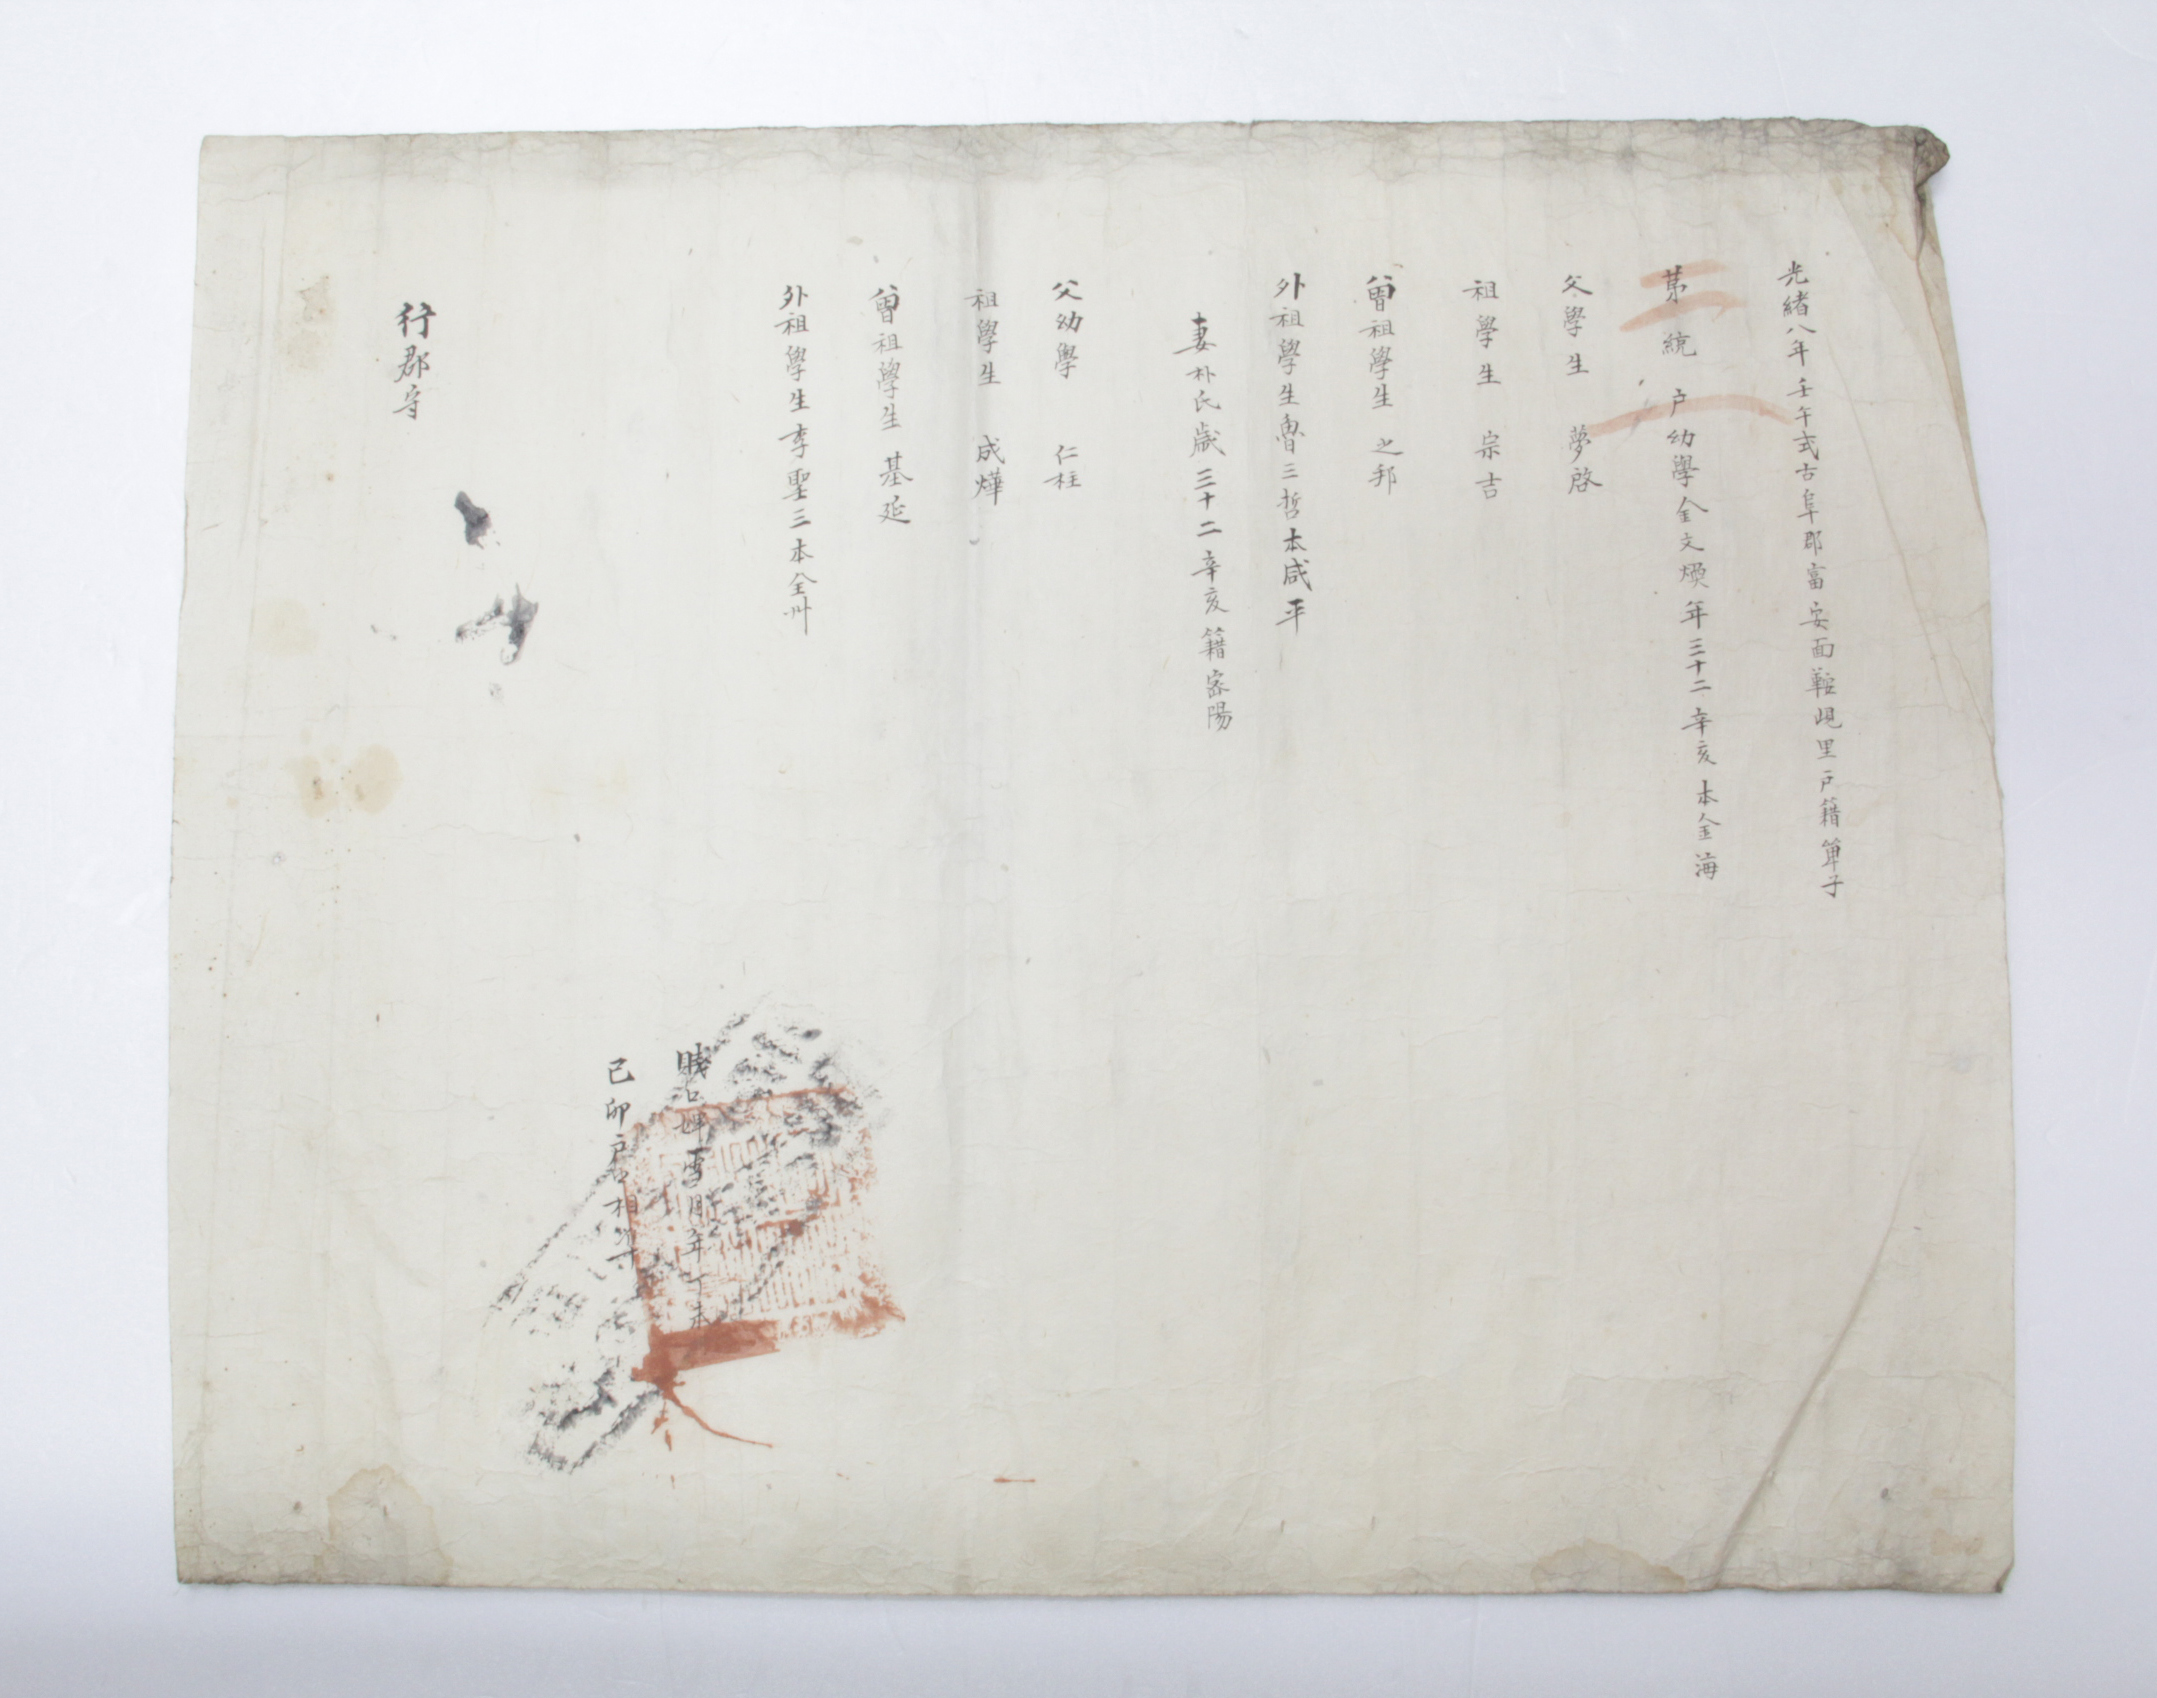 光緒八年壬午式古阜郡富安面鞍峴里戶籍單子
第二統一戶幼學金文煥年三十二辛亥本金海
父學生 夢啓
祖學生 宗吉
曾祖學生 之邦
外祖學生魯三哲本咸平
妻朴氏歲三十二辛亥籍密陽
父幼學 仁柱
祖學生 成燁
曾祖學生 基延
外祖學生李聖三本全州
賤口婢雪月年丁未
己卯戶口相準
行郡守